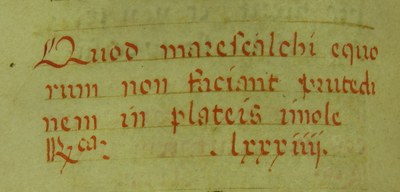 Quod marescalchi equo
rum non faciant prutedi
nem in plateis imole
R̃ca: . lxxxiiij.